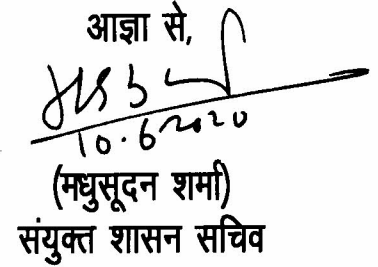 आज्ञा से,
10.6.2020
(मधुसूदन शर्मा)
संयुक्त शासन सचिव